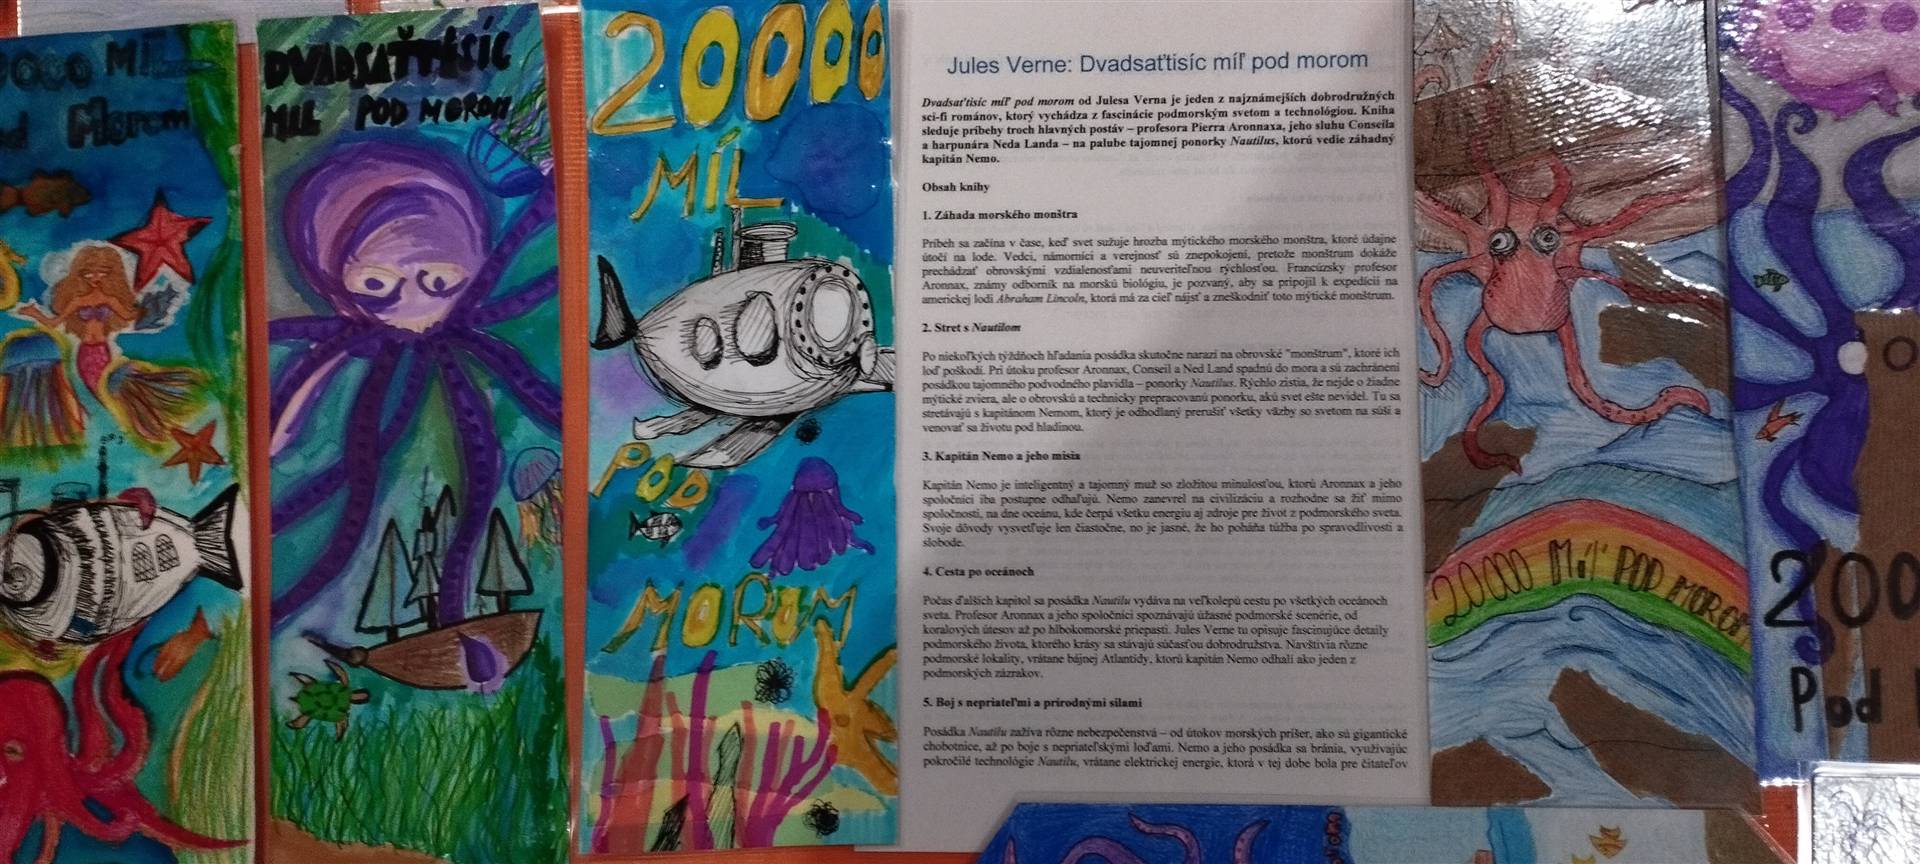 20000
MÍL
POD
MOROM
DVADSAŤTISÍC
MIL POD MOROM
Morom
Jules Verne: Dvadsaťtisíc míľ pod morom
Dvadsaťtisíc míľ pod morom od Julesa Verna je jeden z najznámejších dobrodružných
sci-fi románov, ktorý vychádza z fascinácie podmorským svetom a technológiou. Kniha
sleduje príbehy troch hlavných postáv – profesora Pierra Aronnaxa, jeho sluhu Conseila
a harpunára Neda Landa – na palube tajomnej ponorky Nautilus, ktorú vedie záhadný
kapitán Nemo.
Obsah knihy
1. Záhada morského monštra
Príbeh sa začína v čase, keď svet sužuje hrozba mýtického morského monštra, ktoré údajne
útočí na lode. Vedci, námorníci a verejnosť sú znepokojení, pretože monštrum dokáže
prechádzať obrovskými vzdialenosťami neuveriteľnou rýchlosťou. Francúzsky profesor
Aronnax, známy odborník na morskú biológiu, je pozvaný, aby sa pripojil k expedícii na
americkej lodi Abraham Lincoln, ktorá má za cieľ nájsť a zneškodniť toto mýtické monštrum.
2. Stret s Nautilom
Po niekoľkých týždňoch hľadania posádka skutočne narazí na obrovské "monštrum", ktoré ich
loď poškodí. Pri útoku profesor Aronnax, Conseil a Ned Land spadnú do mora a sú zachránení
posádkou tajomného podvodného plavidla – ponorky Nautilus. Rýchlo zistia, že nejde o žiadne
mýtické zviera, ale o obrovskú a technicky prepracovanú ponorku, akú svet ešte nevidel. Tu sa
stretávajú s kapitánom Nemom, ktorý je odhodlaný prerušiť všetky väzby so svetom na súši a
venovať sa životu pod hladinou.
3. Kapitán Nemo a jeho misia
Kapitán Nemo je inteligentný a tajomný muž so zložitou minulosťou, ktorú Aronnax a jeho
spoločníci iba postupne odhaľujú. Nemo zanevrel na civilizáciu a rozhodne sa žiť mimo
spoločnosti, na dne oceánu, kde čerpá všetku energiu aj zdroje pre život z podmorského sveta.
Svoje dôvody vysvetľuje len čiastočne, no je jasné, že ho poháňa túžba po spravodlivosti a
slobode.
4. Cesta po oceánoch
Počas ďalších kapitol sa posádka Nautilu vydáva na veľkolepú cestu po všetkých oceánoch
sveta. Profesor Aronnax a jeho spoločníci spoznávajú úžasné podmorské scenérie, od
koralových útesov až po hlbokomorské priepasti. Jules Verne tu opisuje fascinujúce detaily
podmorského života, ktorého krásy sa stávajú súčasťou dobrodružstva. Navštívia rôzne
podmorské lokality, vrátane bájnej Atlantídy, ktorú kapitán Nemo odhalí ako jeden z
podmorských zázrakov.
5. Boj s nepriateľmi a prírodnými silami
Posádka Nautilu zažíva rôzne nebezpečenstvá – od útokov morských príšer, ako sú gigantické
chobotnice, až po boje s nepriateľskými loďami. Nemo a jeho posádka sa bránia, využívajúc
pokročilé technológie Nautilu, vrátane elektrickej energie, ktorá v tej dobe bola pre čitateľov
20000 Míľ POD MOROM
200
Pod